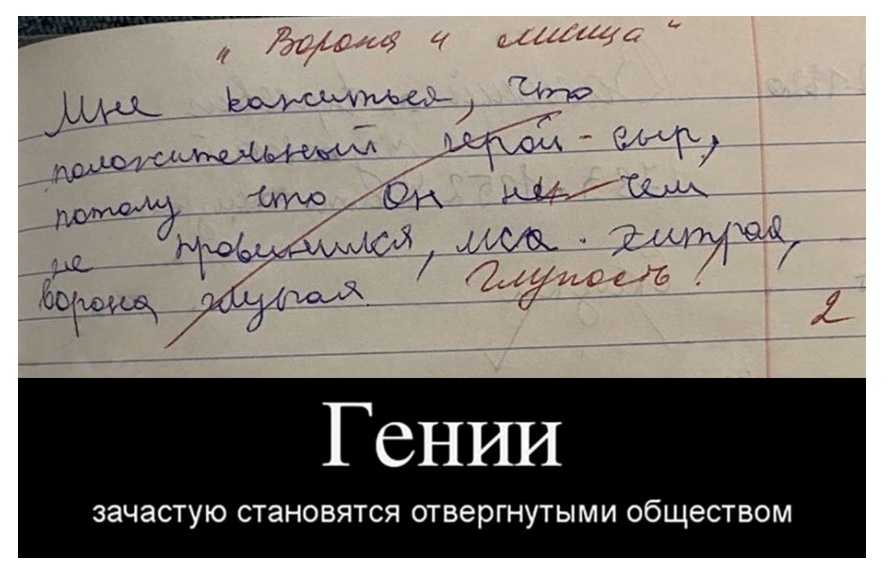 "Ворона и лисица"
Мне кажеться, что
положительный герой - сыр,
потому что он не чем
не провинился, лиса - хитрая,
ворона глупая. Глупость!
2
Гении
зачастую становятся отвергнутыми обществом